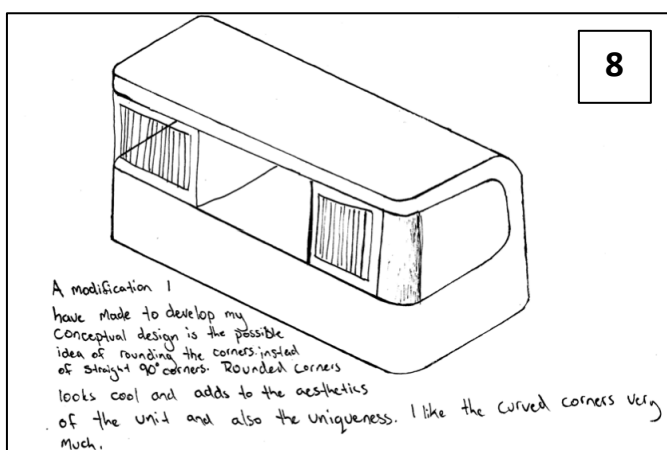 8
A modification I
have made to develop my
conceptual design is the possible
idea of rounding the corners insted
of straight 90° corners. Rounded corners
looks cool and adds to the aesthetics
of the unit and also the uniqueness. I like the curved corners very
much.